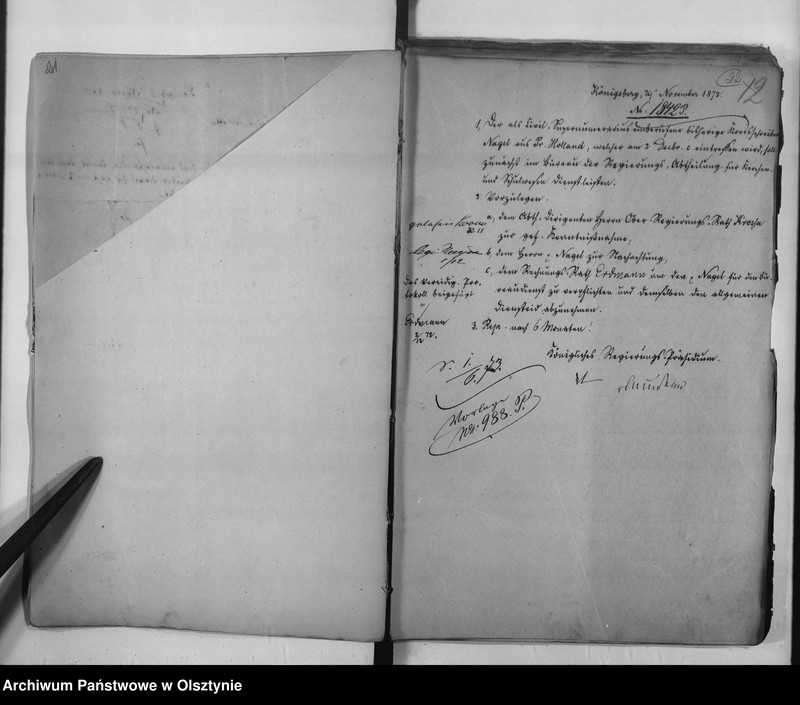 21
22
12
Königsberg, 29 November 1872.
No. 18423.
1, Der als Civil-Supernumerarius bisherige Kreisschreiber
Nagel aus Pr. Holland, welcher am 2 Decbr. c eintreffen wird, soll
zunächst im Bureau der Regierungs-Abtheilung für Kirchen-
und Schulwesen Dienst leisten.
2 Vorzulegen.
a, dem Abth. Dirigenten Herrn Ober Regierungs-Rath
zur gef. Kenntnißnahme,
b, dem Herrn Nagel zur Nachachtung,
c, dem Rechnungs-Rath Erdmann um den Nagel für den Bü-
reaudienst zu verpflichten und demselben den allgemeinen
Diensteid abzunehmen.
3. Repr. nach 6 Monaten!
Königliches Regierungs-Präsidium.
gelesen
30.11
legi
1/12
Das Vereidig. Pro-
tokoll beigefügt
Erdmann
2/12 72.
1./6. 73.
Vorlage
No: 988. P.
Archiwum Państwowe w Olsztynie